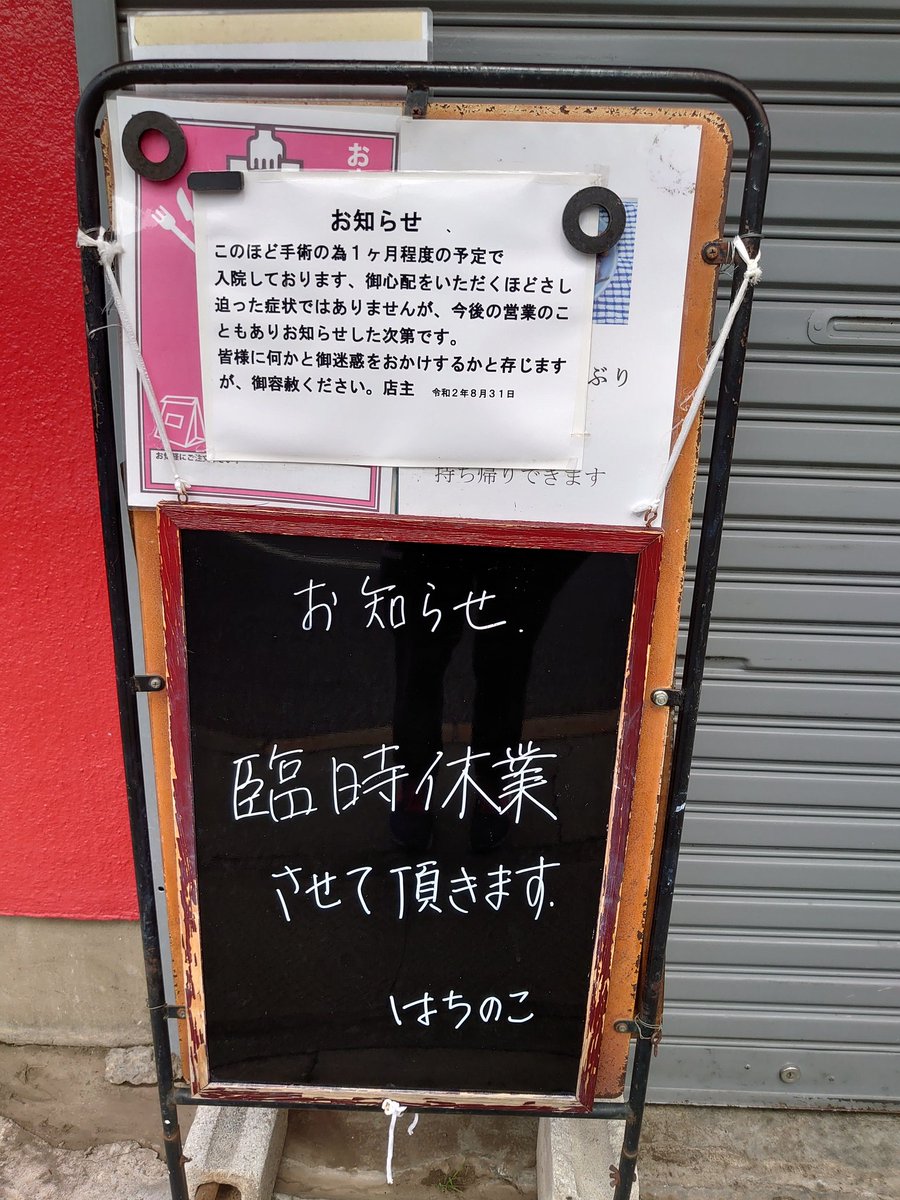 お
お知らせ
このほど手術の為１ヶ月程度の予定で
入院しております、御心配をいただくほどさし
迫った症状ではありませんが、今後の営業のこ
ともありお知らせした次第です。
皆様に何かと御迷惑をおかけするかと存じます
が、御容赦ください。店主　令和２年８月３１日
ぶり
持ち帰りできます
お知らせ.
臨時休業
させて頂きます.
はちのこ